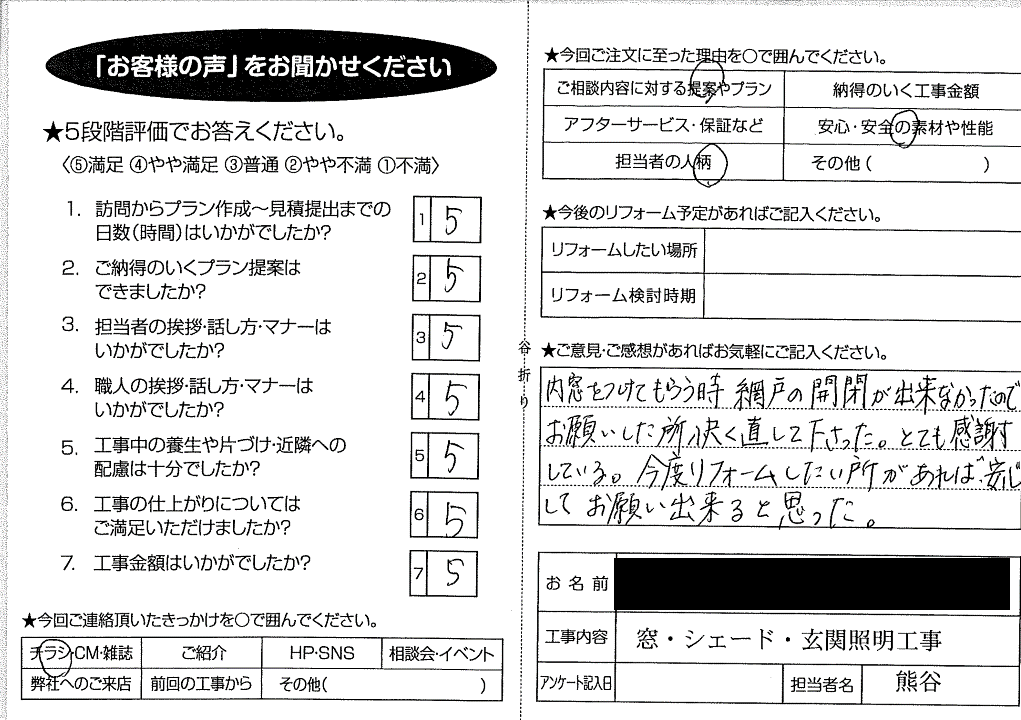 「お客様の声」をお聞かせください
★5段階評価でお答えください。
〈⑤満足 ④やや満足 ③普通 ②やや不満 ①不満〉
1. 訪問からプラン作成～見積提出までの
日数(時間)はいかがでしたか?
1 5
2. ご納得のいくプラン提案は
できましたか?
2 5
3. 担当者の挨拶・話し方・マナーは
いかがでしたか?
3 5
4. 職人の挨拶・話し方・マナーは
いかがでしたか?
4 5
5. 工事中の養生や片づけ・近隣への
配慮は十分でしたか?
5 5
6. 工事の仕上がりについては
ご満足いただけましたか?
6 5
7. 工事金額はいかがでしたか?
7 5
★今回ご連絡頂いたきっかけを○で囲んでください。
チラシ・CM・雑誌 ご紹介 HP・SNS 相談会・イベント
弊社へのご来店 前回の工事から その他( )
谷折り
★今回ご注文に至った理由を○で囲んでください。
ご相談内容に対する提案やプラン 納得のいく工事金額
アフターサービス・保証など 安心・安全の素材や性能
担当者の人柄 その他( )
★今後のリフォーム予定があればご記入ください。
リフォームしたい場所
リフォーム検討時期
★ご意見・ご感想があればお気軽にご記入ください。
内窓をつけてもらう時 網戸の開閉が出来なかったので
お願いした所、快く直して下さった。とても感謝
している。今度リフォームしたい所があれば、安心
してお願い出来ると思った。
お名前
工事内容 窓・シェード・玄関照明工事
アンケート記入日 担当者名 熊谷